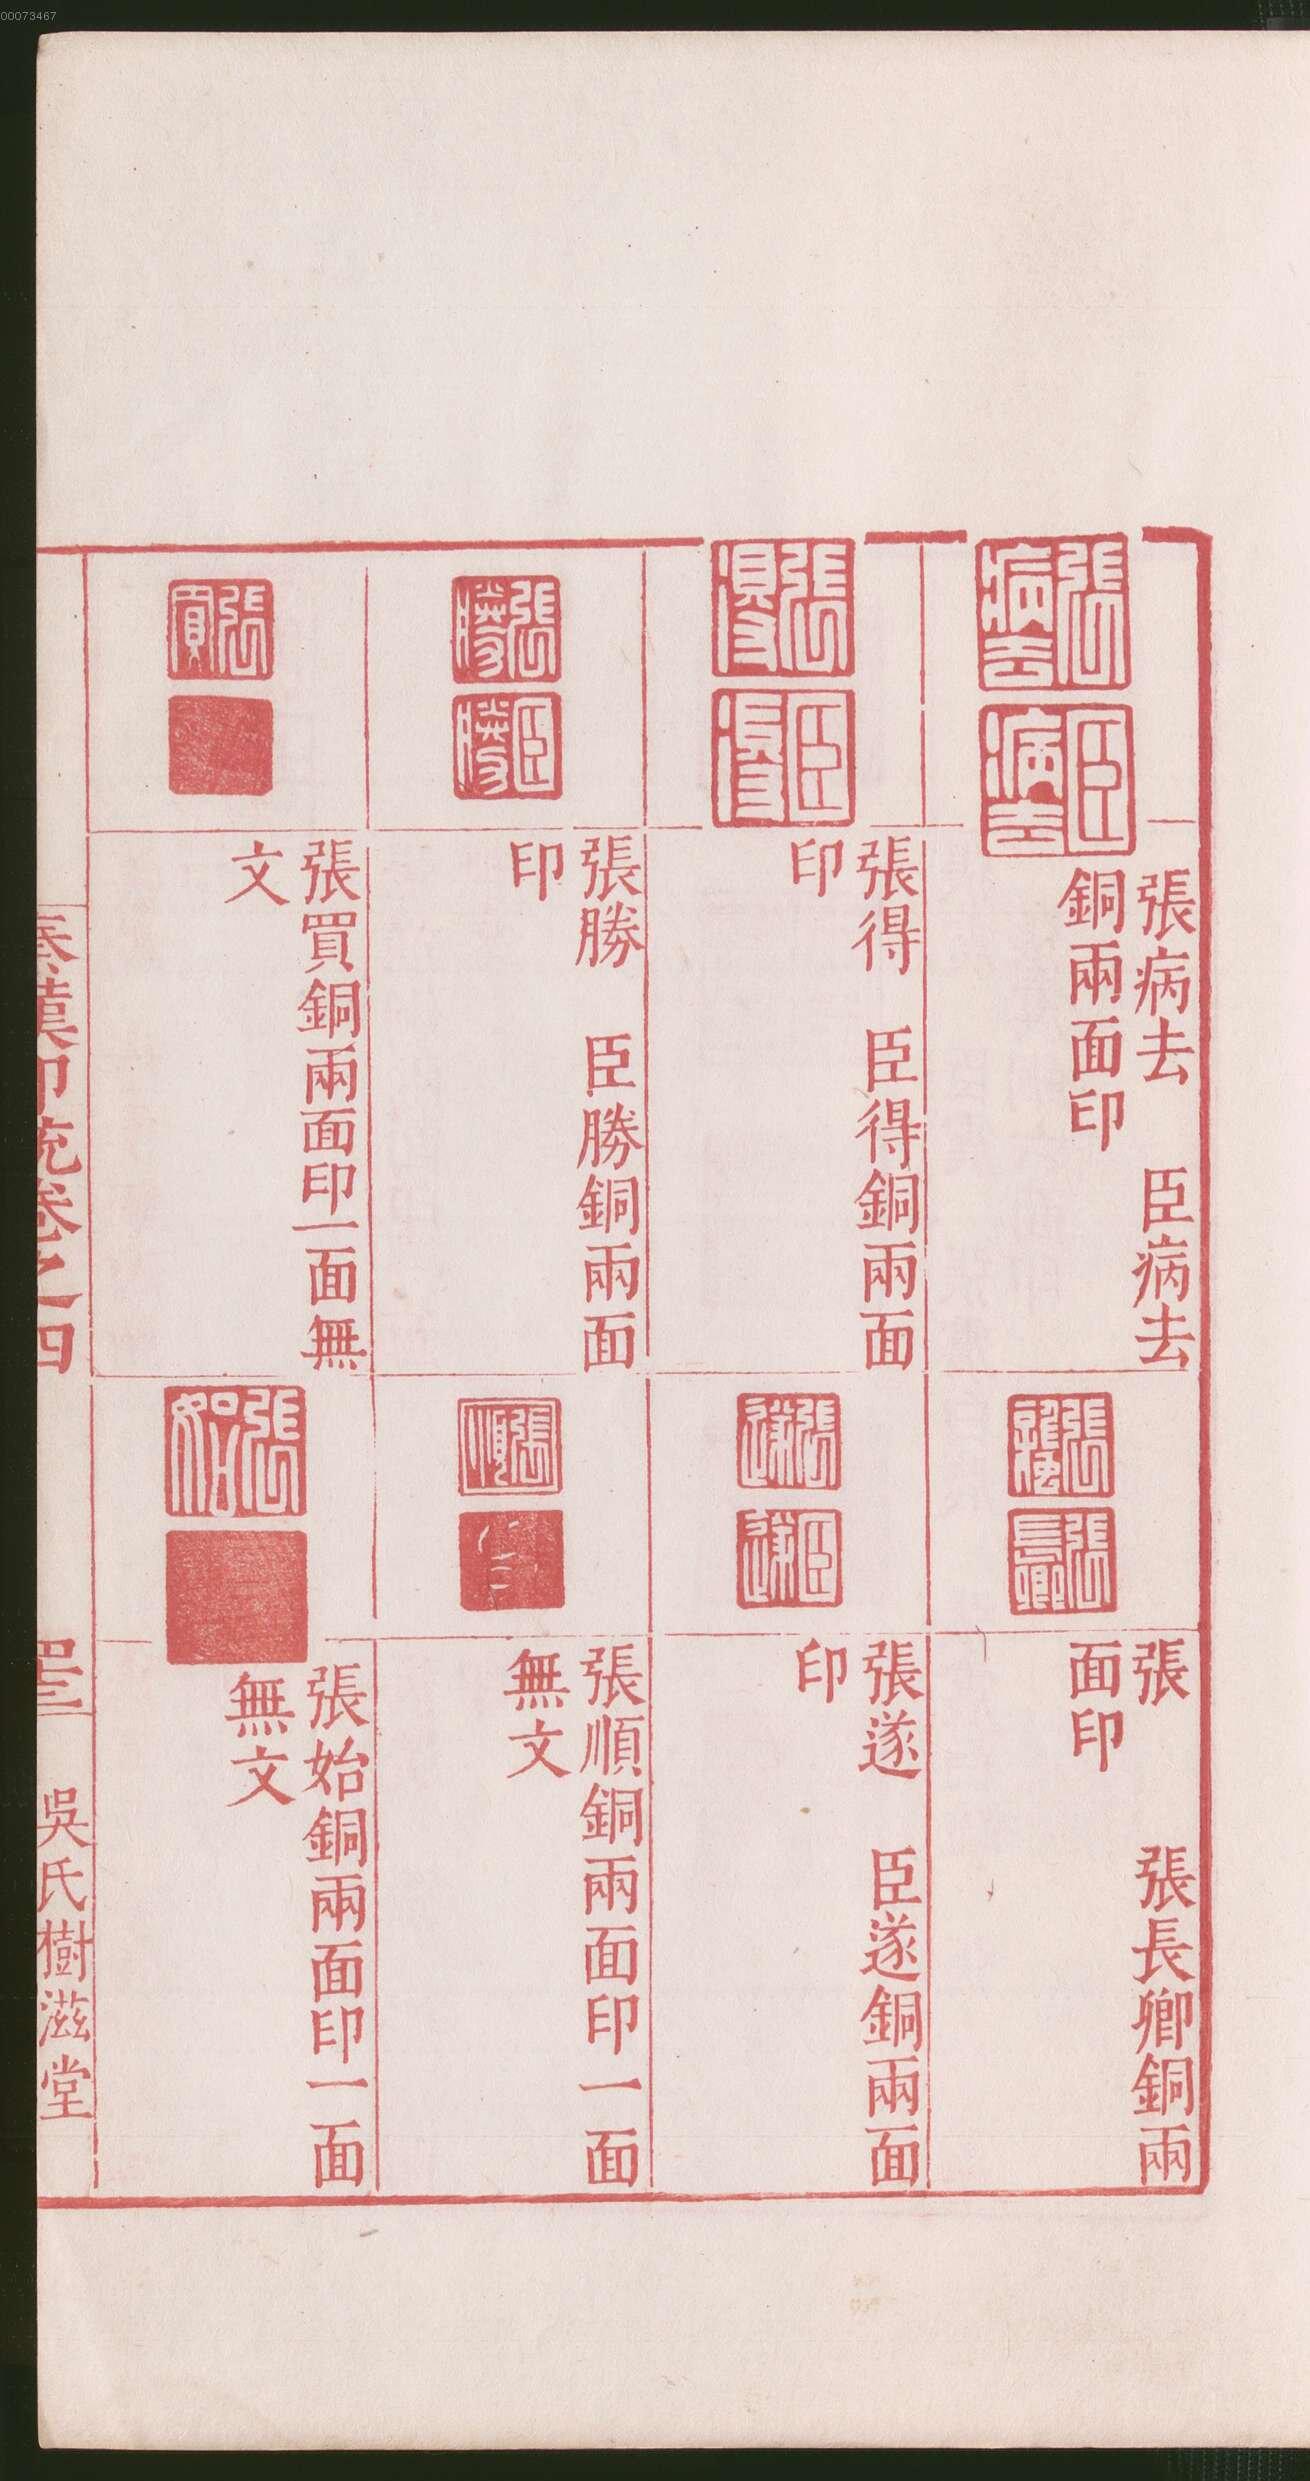 00073467
張病去
臣病去
張病去　臣病去
銅兩面印
張得
臣得
張得　臣得銅兩面
印
張勝
臣勝
張勝　臣勝銅兩面
印
張買
張買銅兩面印一面無
文
張
張長卿
張　　張長卿銅兩
面印
張遂
臣遂
張遂　臣遂銅兩面
印
張順
張順銅兩面印一面
無文
張始
張始銅兩面印一面
無文
秦漢印統卷之四
四三　吳氏樹滋堂